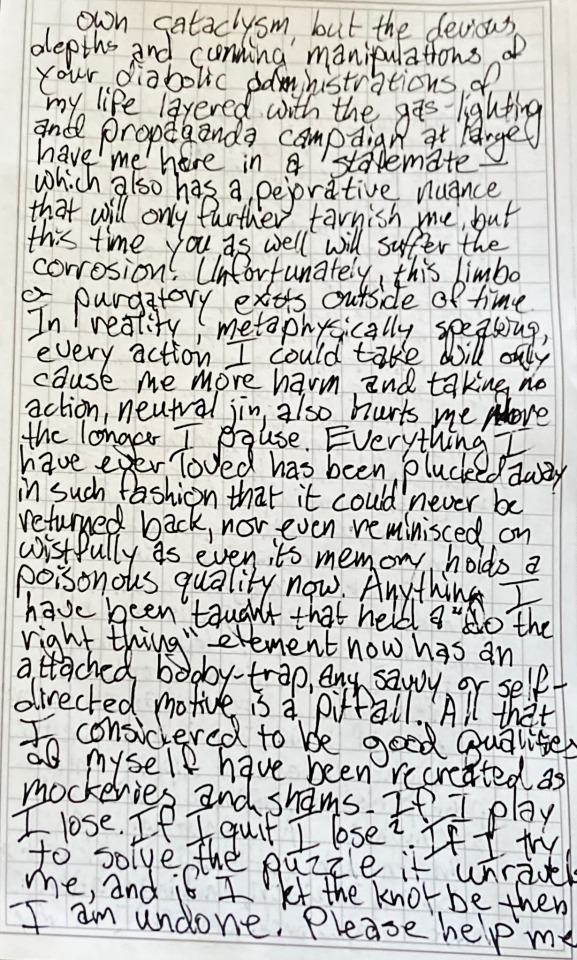 own cataclysm, but the devious
depths and cunning manipulations of
your diabolic administrations of
my life layered with the gas-lighting
and propaganda campaign at large
have me here in a stalemate -
which also has a pejorative nuance
that will only further tarnish me, but
this time you as well will suffer the
corrosion. Unfortunately, this limbo
or purgatory exists outside of time.
In reality, metaphysically speaking,
every action I could take will only
cause me more harm and taking no
action, neutral jin, also hurts me more
the longer I pause. Everything I
have ever loved has been plucked away
in such fashion that it could never be
returned back, nor even reminisced on
wistfully as even its memory holds a
poisonous quality now. Anything I
have been taught that held a "do the
right thing" element now has an
attached booby-trap, any savvy or self-
directed motive is a pitfall. All that
I considered to be good qualities
of myself have been recreated as
mockeries and shams. If I play
I lose. If I quit I lose². If I try
to solve the puzzle it unravels
me, and if I let the knot be then
I am undone. Please help me